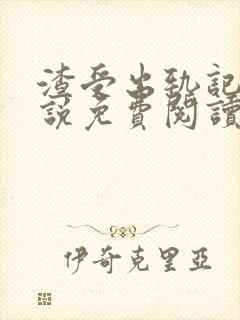 渣受出轨記
說免費閱讀
伊奇克里亞